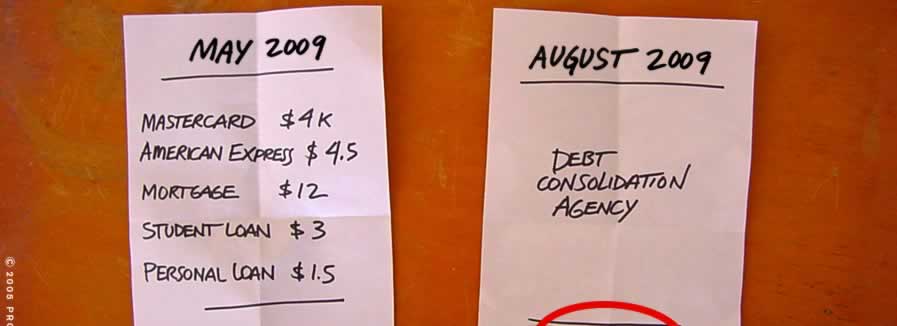 MAY 2009
MASTERCARD $4K
AMERICAN EXPRESS $4.5
MORTGAGE $12
STUDENT LOAN $3
PERSONAL LOAN $1.5
AUGUST 2009
DEBT
CONSOLIDATION
AGENCY
© 2005 PRO